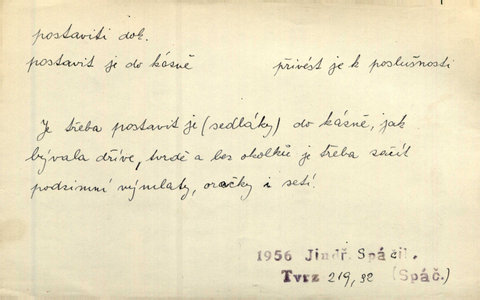 postaviti dok.
postavit je do kásně přivést je k poslušnosti
Je třeba postavit je (sedláky) do kásně, jak
bývala dříve, tvrdě a bez okolků je třeba začít
podzimní výmlaty, oračky i setí.
1956 Jindř. Spáčil.
Tvrz 219, 92 (Spáč.)